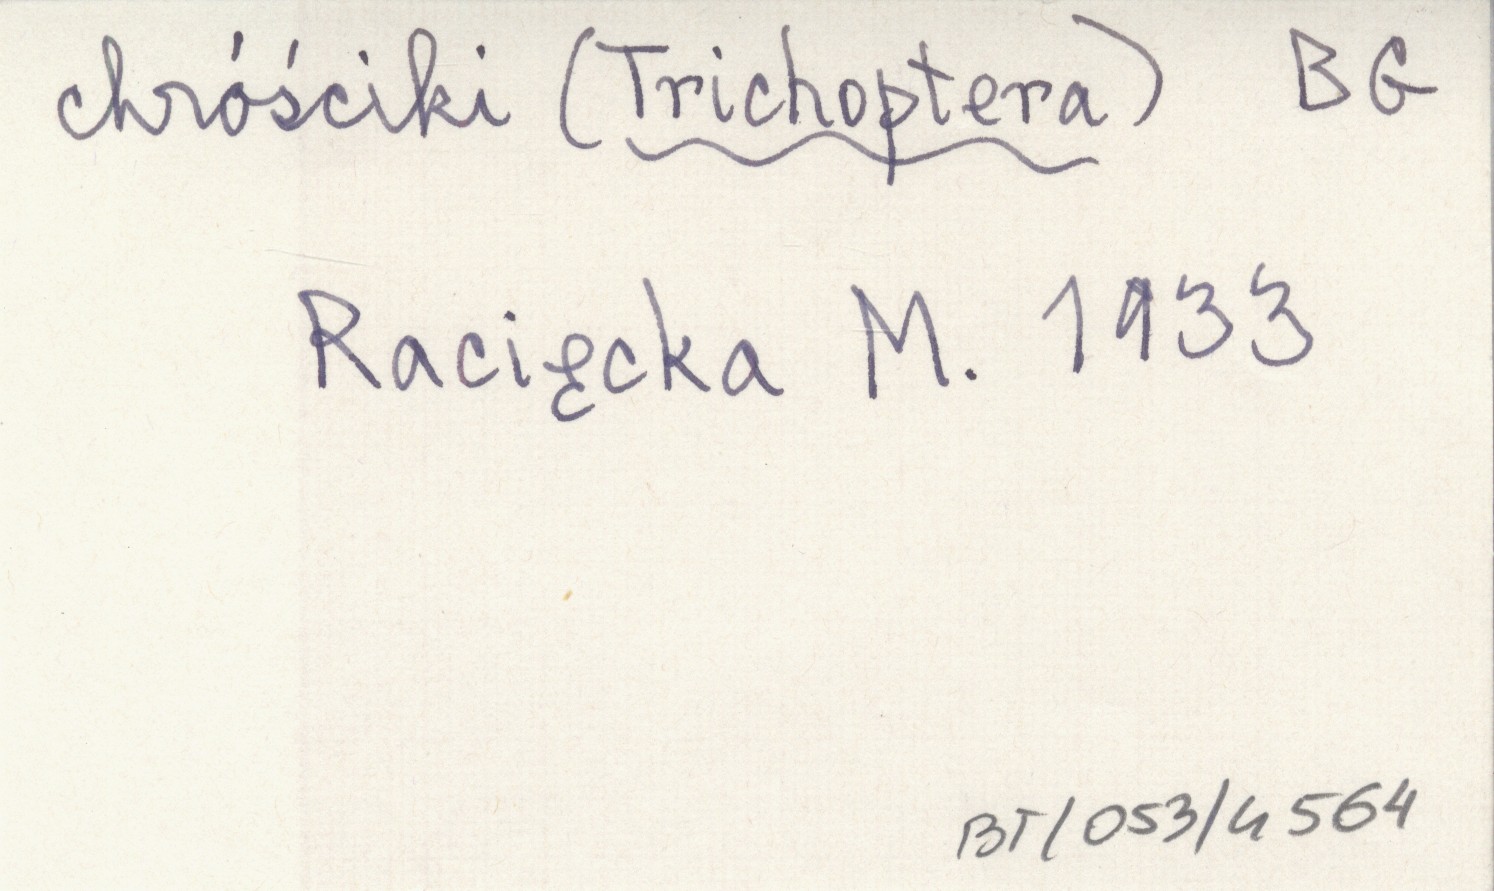 chróściki (Trichoptera) BG
Racięcka M. 1933
BT/053/4564